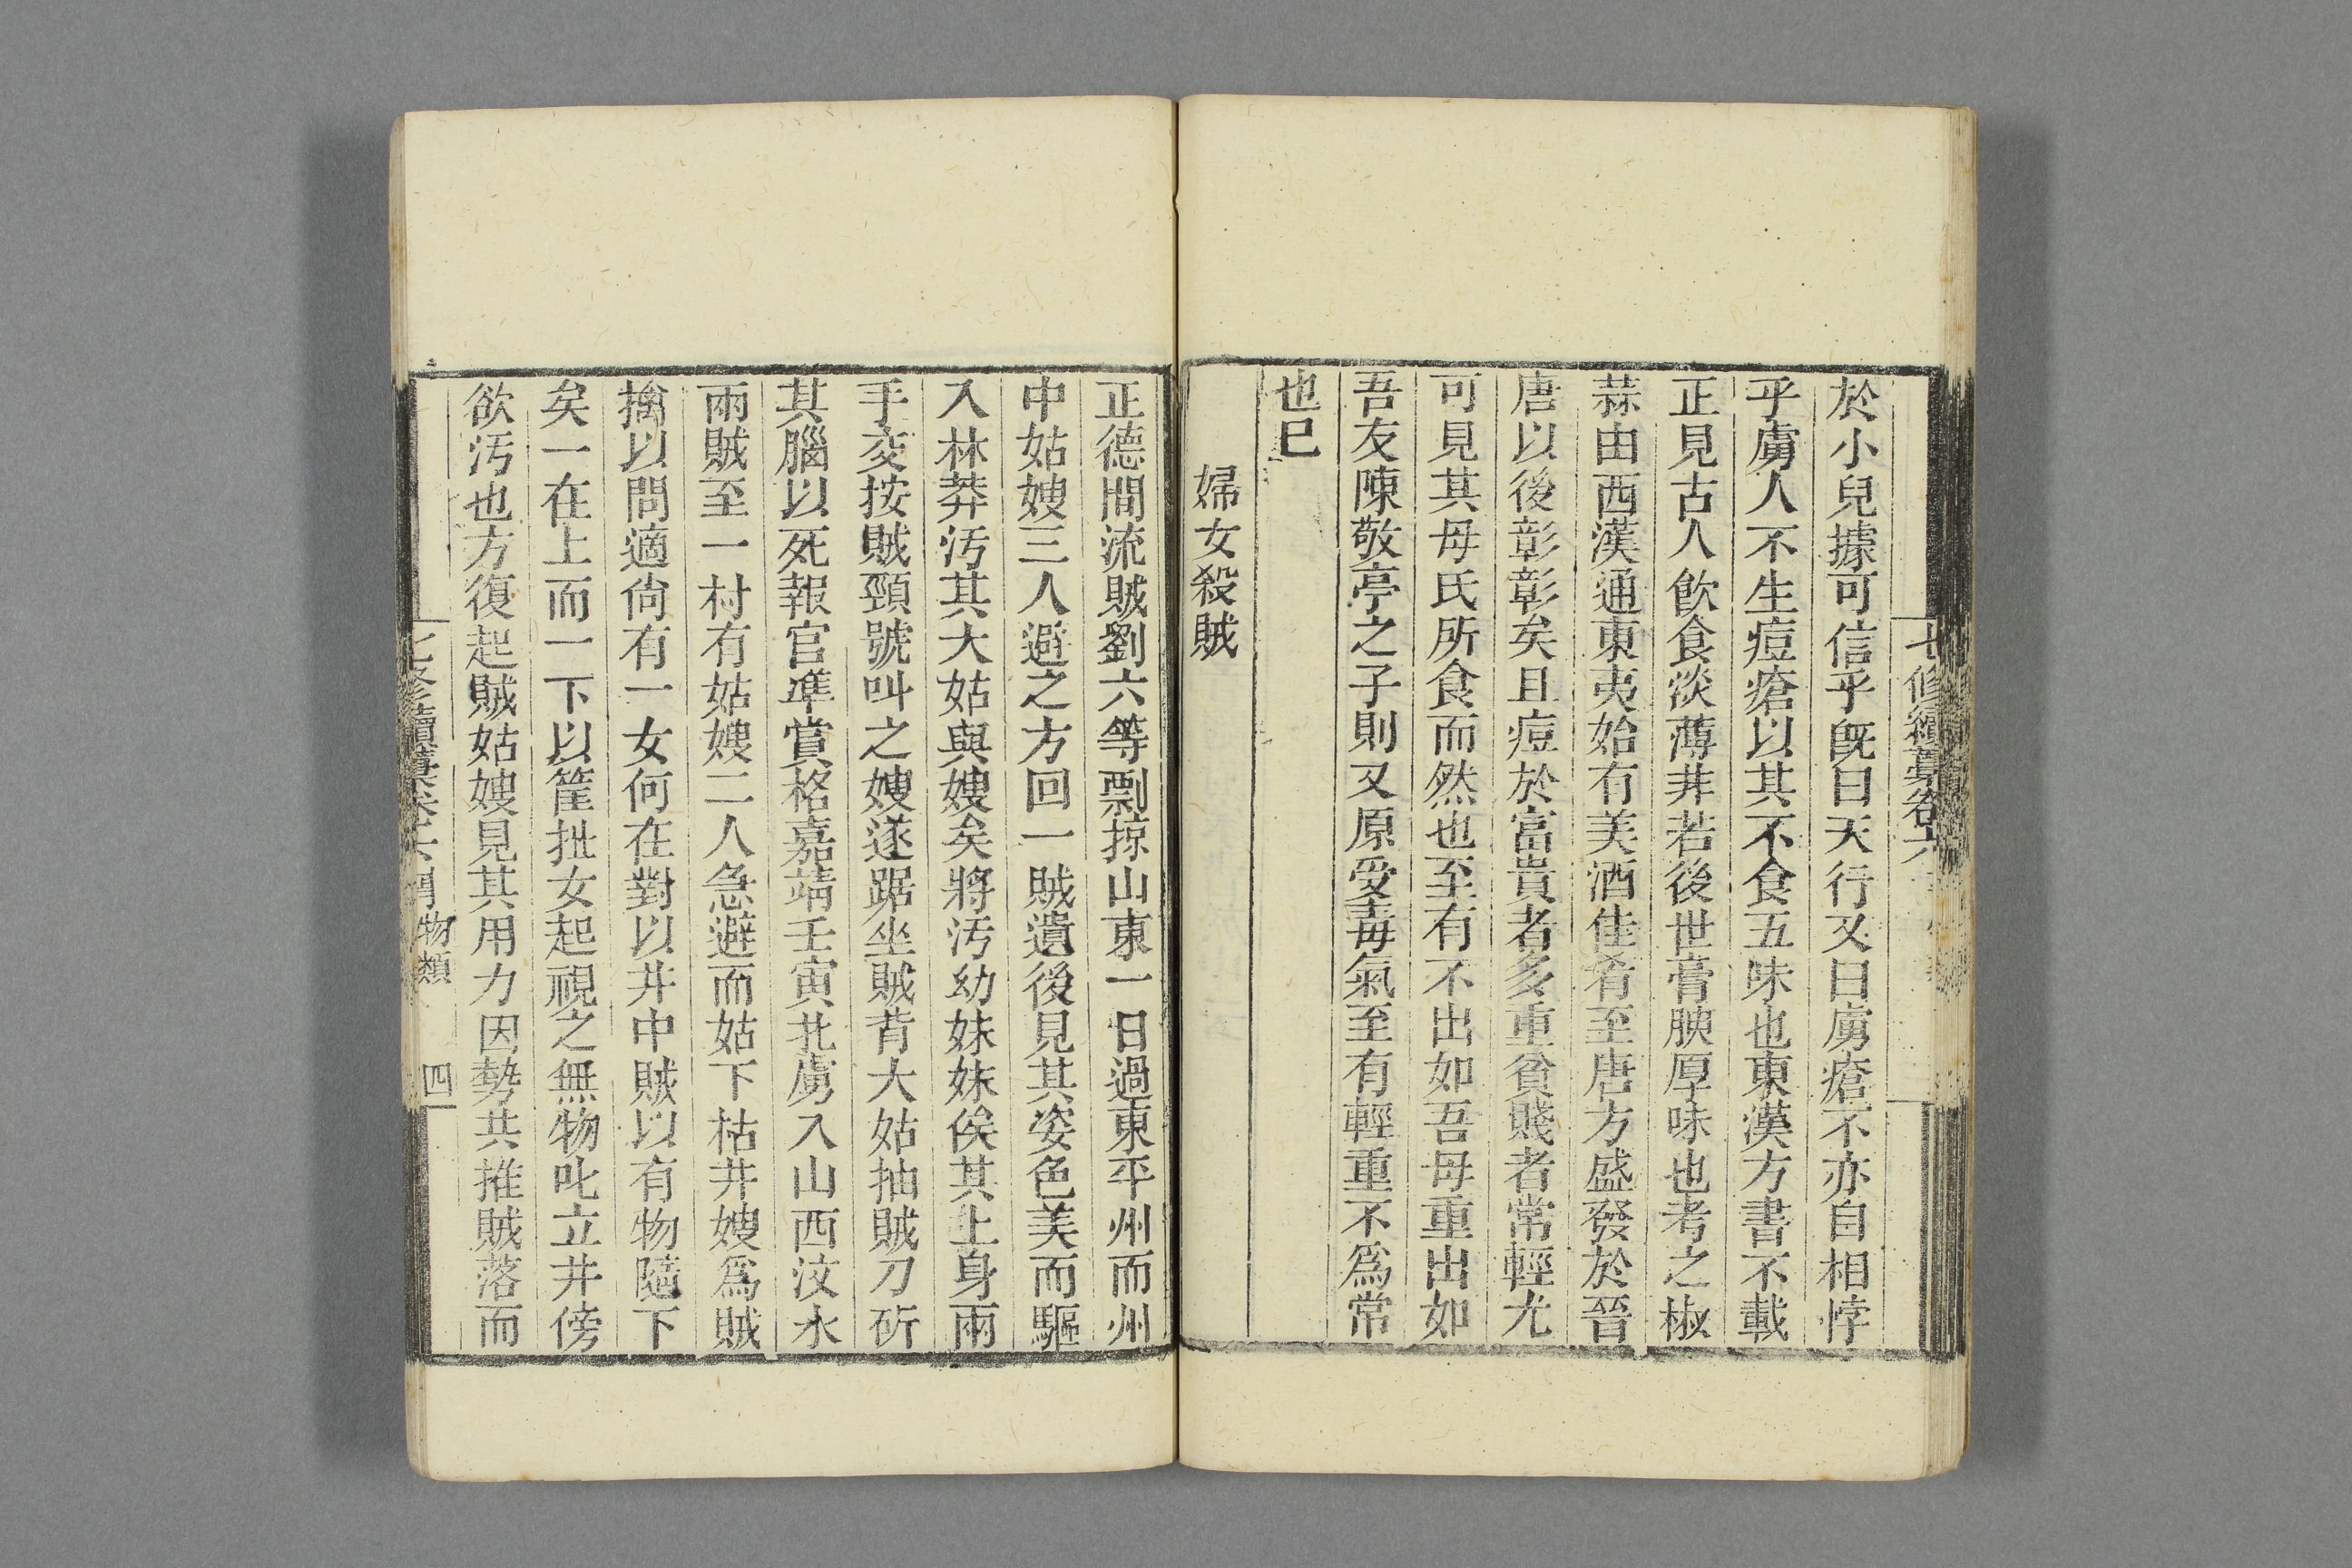 七修續藁卷六
於小兒據可信乎既曰天行又曰虜瘡不亦自相悖
乎虜人不生痘瘡以其不食五味也東漢方書不載
正見古人飲食淡薄非若後世膏腴厚味也考之椒
蒜由西漢通東夷始有美酒佳肴至唐方盛發於晉
唐以後彰彰矣且痘於富貴者多重貧賤者常輕尤
可見其母氏所食而然也至有不出如吾母重出如
吾友陳敬亭之子則又原受毒氣至有輕重不爲常
也已
婦女殺賊
正德間流賊劉六等剽掠山東一日過東平州而州
中姑嫂三人避之方回一賊遺後見其姿色美而驅
入林莽汚其大姑與嫂矣將汚幼妹妹俟其上身兩
手交按賊頸號叫之嫂遂踞坐賊背大姑抽賊刀斫
其腦以死報官準賞格嘉靖壬寅北虜入山西汶水
兩賊至一村有姑嫂二人急避而姑下枯井嫂爲賊
擒以問適尙有一女何在對以井中賊以有物隨下
矣一在上而一下以筐扯女起視之無物叱立井傍
欲汚也方復起賊姑嫂見其用力因勢共推賊落而
物類
四